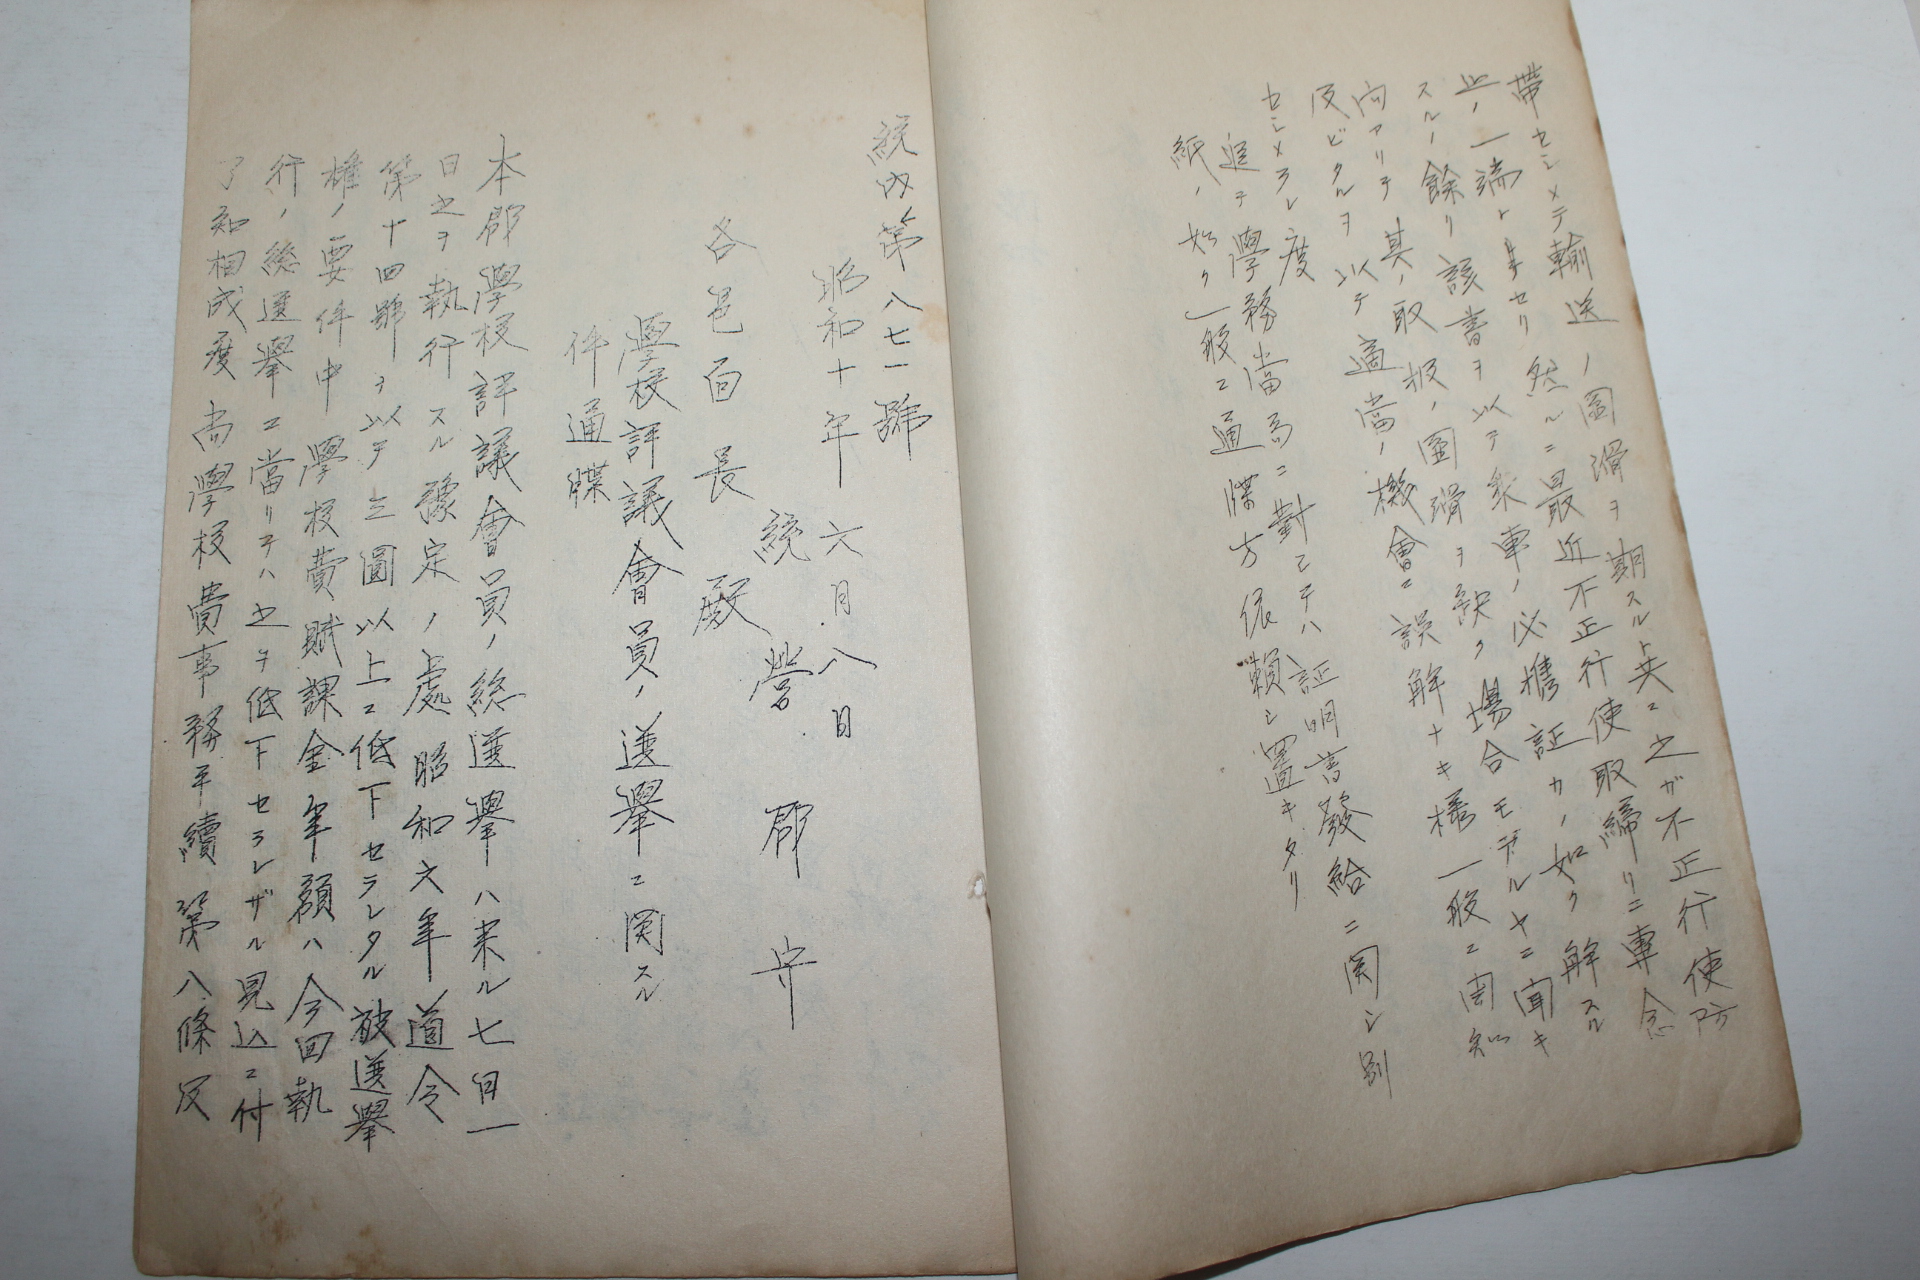 帯セシメテ輸送ノ圓滑ヲ期スルト共ニ之ガ不正行使防
止ノ一端トナセリ然ルニ最近不正行使取締リニ専念
スルノ餘リ該書ヲ以テ乗車ノ必携証カノ如ク解スル
向アリテ其ノ取扱ノ圓滑ヲ缺ク場合モアルヤニ聞キ
及ビタルヲ以テ適當ノ機會ニ誤解ナキ様一般ニ周知
セシメラレ度
追テ學務當局ニ對シテハ証明書發給ニ関シ別
紙ノ如ク一般ニ通牒方依頼シ置キタリ
統内第八七一號
昭和十年六月八日
統營郡守
各邑面長殿
學校評議會員ノ選擧ニ関スル
件通牒
本郡學校評議會員ノ総選擧ハ来ル七月一
日之ヲ執行スル豫定ノ處昭和六年道令
第十四號ヲ以テ三圓以上ニ低下セラレタル被選擧
権ノ要件中學校費賦課金年額ハ今回執
行ノ総選擧ニ當リテハ之ヲ低下セラレザル見込ニ付
了知相成度尚學校費事務手續第八條及